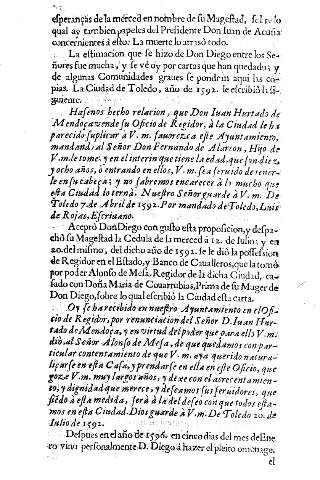 esperanças de la merced en nombre de su Magestad, sobre lo
qual ay tambien papeles del Presidente Don Iuan de Acuña
concernientes à esto: La muerte lo atrasò todo.
La estimacion que se hizo de Don Diego entre los Se-
ñores fue mucha, y se vè oy por cartas que han quedado; y
de algunas Comunidades graues se pondràn aqui las co-
pias. La Ciudad de Toledo, año de 1592. le escribiò la si-
guiente.
Hasenos hecho relacion, que Don Iuan Hurtado de
Mendoça vende su Oficio de Regidor, à la Ciudad le ha
parecido suplicar à V. m. fauorezca este Ayuntamiento,
mandando al Señor Don Fernando de Alarcon, Hijo de
V. m. le tome; y en el interin que tiene la edad, que son diez
y ocho años, ò entrando en ellos, V. m. sea seruido de tener-
le en su cabeça; y no sabremos encarecer à lo mucho que
esta Ciudad lo ternà. Nuestro Señor guarde à V. m. De
Toledo 7. de Abril de 1592. Por mandado de Toledo, Luis
de Rojas, Escriuano.
Aceptò Don Diego con gusto esta proposicion, y despa-
chò su Magestad la Cedula de la merced à 12. de Iulio; y en
20. del mismo, del dicho año de 1592. se le diò la possession
de Regidor en el Estado, y Banco de Caualleros, que la tomò
por poder Alonso de Mesa, Regidor de la dicha Ciudad, ca-
sado con Doña Maria de Couarrubias, Prima de su Muger
de Don Diego, sobre lo qual escribiò la Ciudad esta carta.
Oy se ha recebido en nuestro Ayuntamiento en el Ofi-
cio de Regidor, por renunciacion del Señor D. Iuan Hur-
tado de Mendoça, y en virtud del poder que para ello V. m.
diò, al Señor Alonso de Mesa, de que quedamos con par-
ticular contentamiento de que V. m. aya querido natura-
liçarse en esta Casa, y prendarse en ella en este Oficio, que
goze V. m. muy largos años, y dexe con el acrecentamien-
to, y dignidad que merece, y desseamos sus seruidores, que
siendo à esta medida, serà à la del desseo con que todos esta-
mos en esta Ciudad. Dios guarde à V. m. De Toledo 20. de
Iulio de 1592.
Despues en el año de 1596. en cinco dias del mes de Ene
ro vino personalmente D. Diego à hazer el pleito omenage,
el